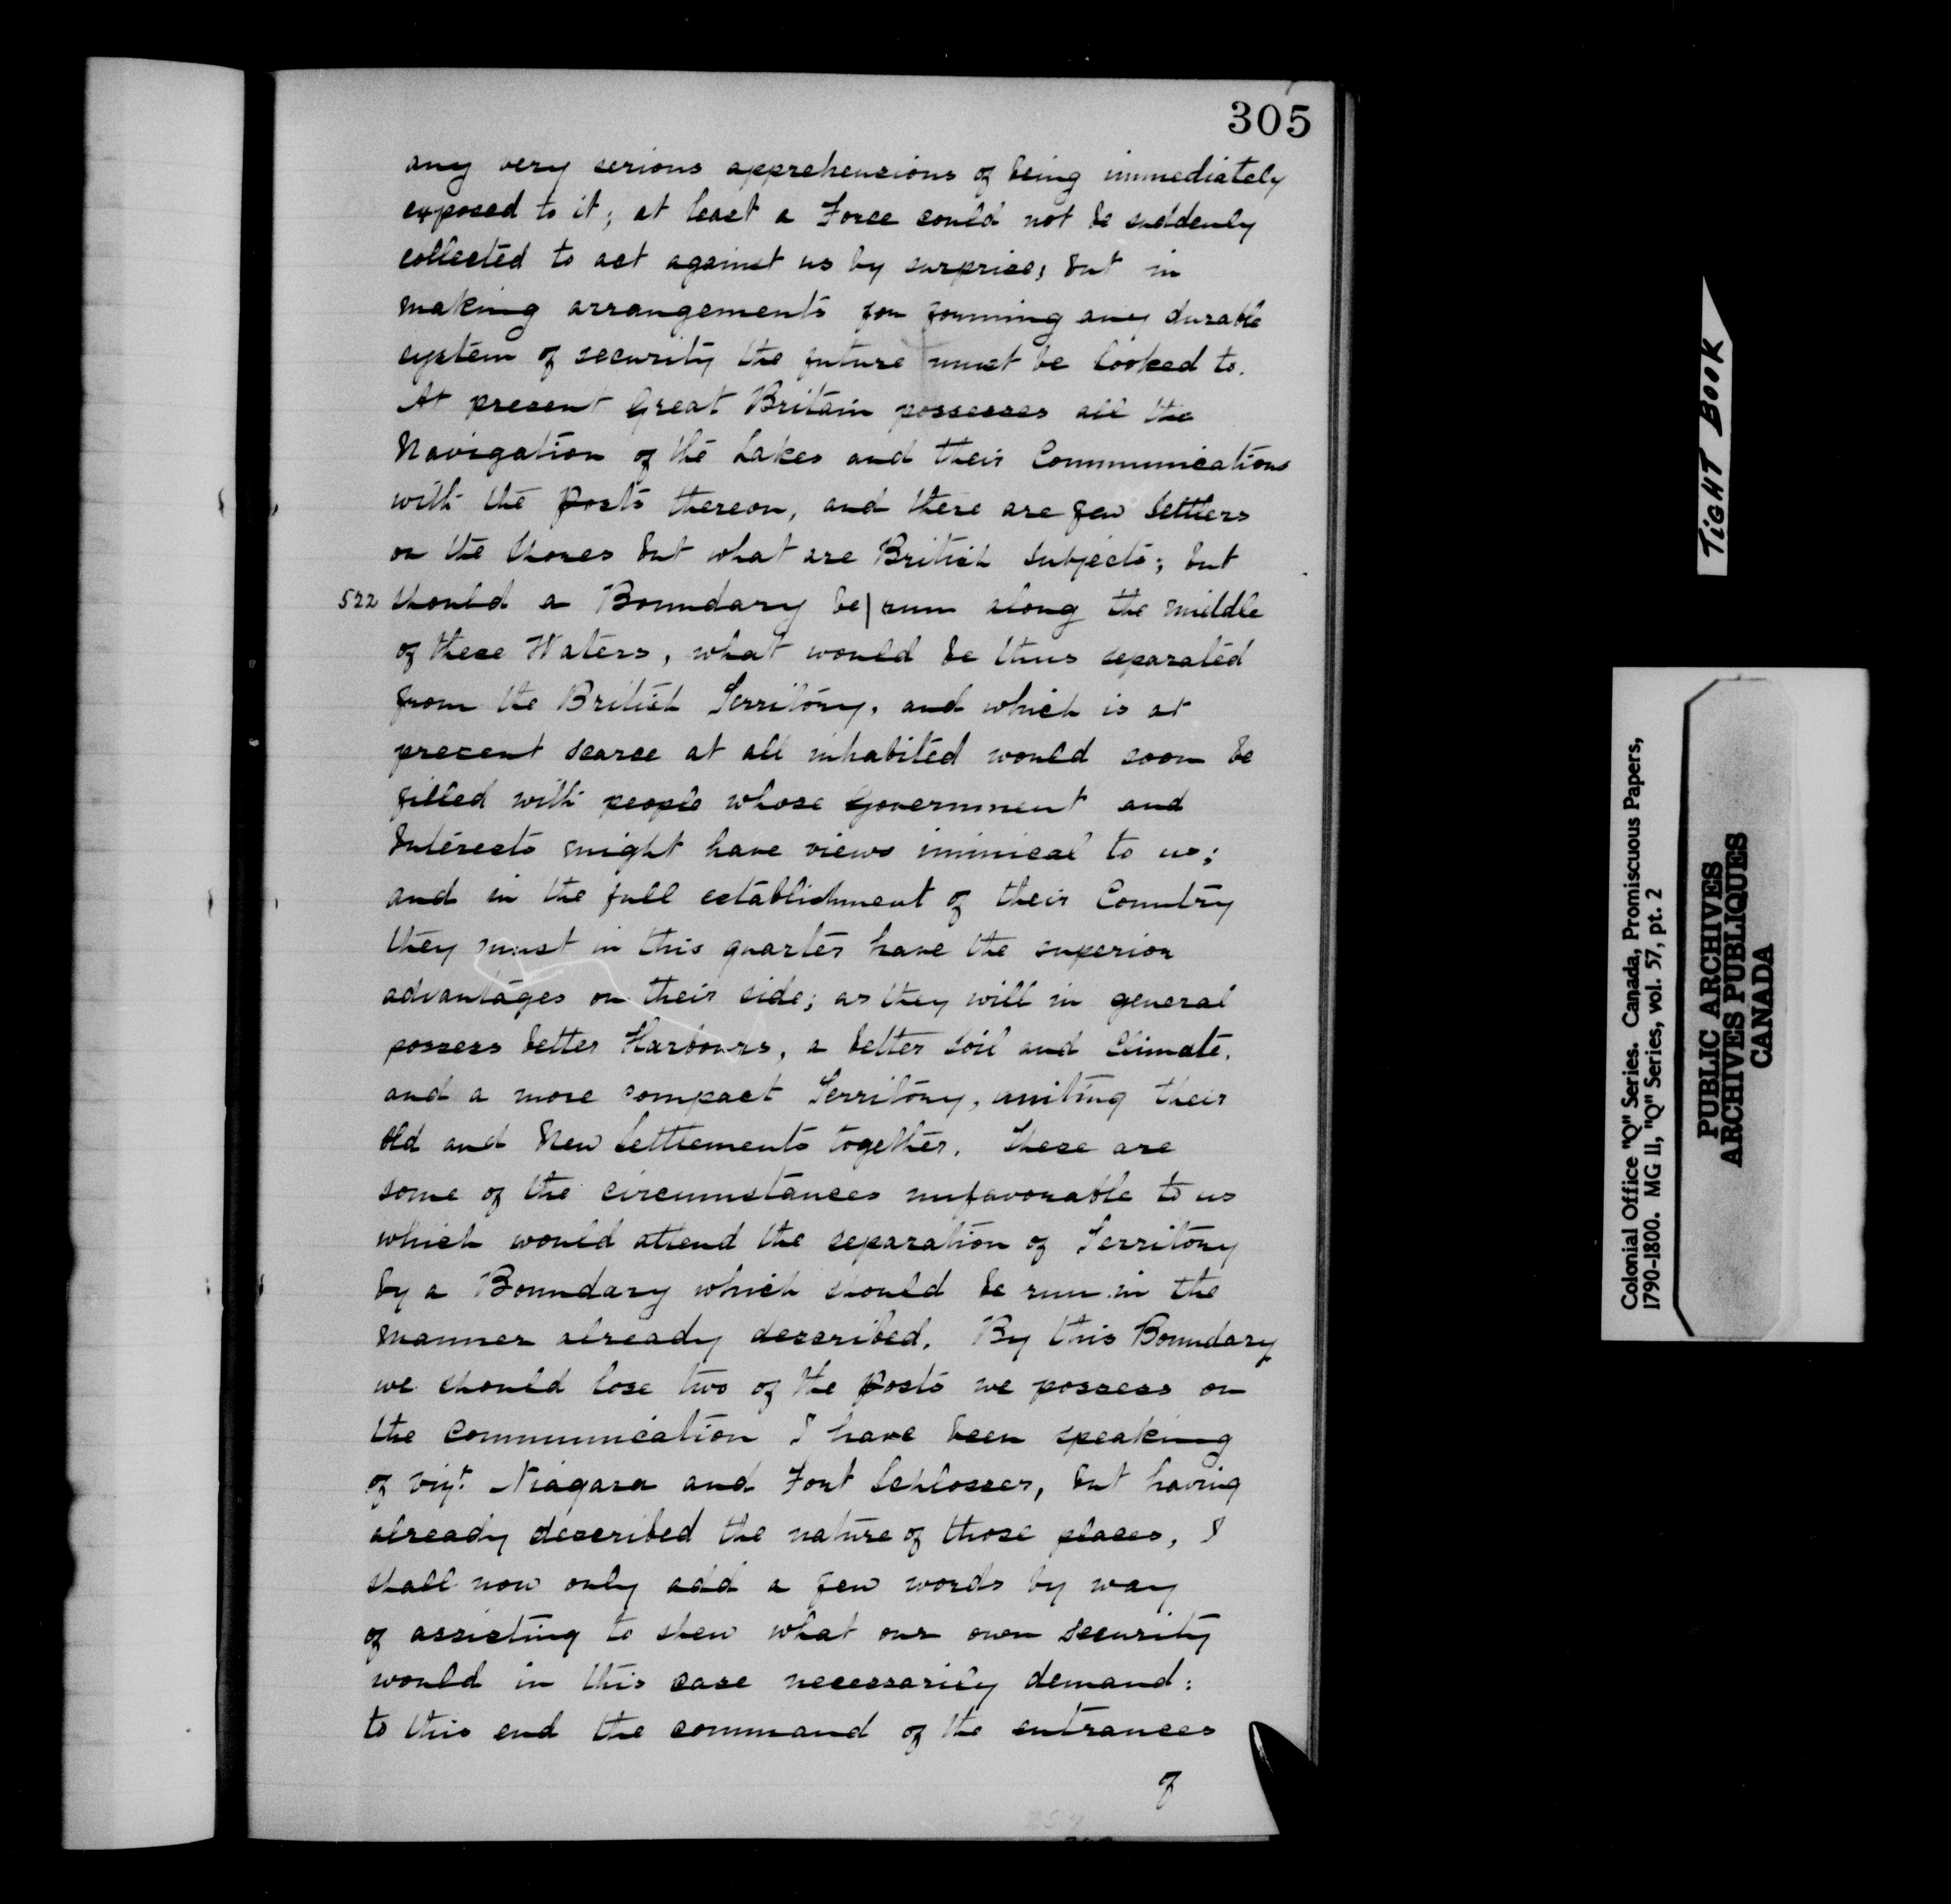 305
any very serious apprehensions of being immediately
exposed to it; at least a Force could not be suddenly
collected to act against us by surprise; but in
making arrangements for forming any durable
system of security the future must be looked to.
At present Great Britain possesses all the
Navigation of the Lakes and their Communications
with the Posts thereon, and there are few Settlers
on the Shores but what are British Subjects; but
522 should a Boundary be| run along the middle
of these Waters, what would be thus separated
from the British Territory, and which is at
present scarce at all inhabited would soon be
filled with people whose Government and
Interests might have views inimical to us;
and in the full establishment of their Country
they must in this quarter have the superior
advantages on their side; as they will in general
possess better Harbours, a better Soil and Climate,
and a more compact Territory, uniting their
Old and New Settlements together. These are
some of the circumstances unfavorable to us
which would attend the separation of Territory
by a Boundary which should be run in the
manner already described. By this Boundary
we should lose two of the Posts we possess on
the Communication I have been speaking
of vizt. Niagara and Fort Schlosser, but having
already described the nature of those places, I
shall now only add a few words by way
of assisting to shew what our own security
would in this case necessarily demand:
to this end the command of the entrances
of
TIGHT BOOK
Colonial Office "Q" Series. Canada, Promiscuous Papers,
1790-1800. MG 11, "Q" Series, vol. 57, pt. 2
PUBLIC ARCHIVES
ARCHIVES PUBLIQUES
CANADA